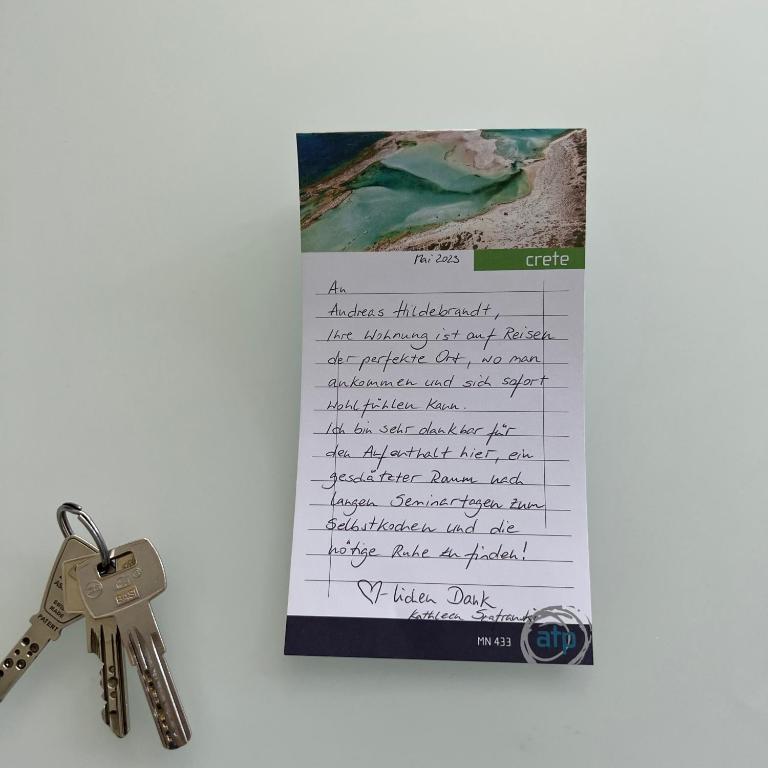 Mai 2023
crete
An
Andreas Hildebrandt,
Ihre Wohnung ist auf Reisen
der perfekte Ort, wo man
ankommen und sich sofort
wohlfühlen kann.
Ich bin sehr dankbar für
den Aufenthalt hier, ein
geschätzter Raum nach
langen Seminartagen zum
Selbstkochen und die
nötige Ruhe zu finden!
♡-lichen Dank
Kathleen
MN 433
atp
PATENT